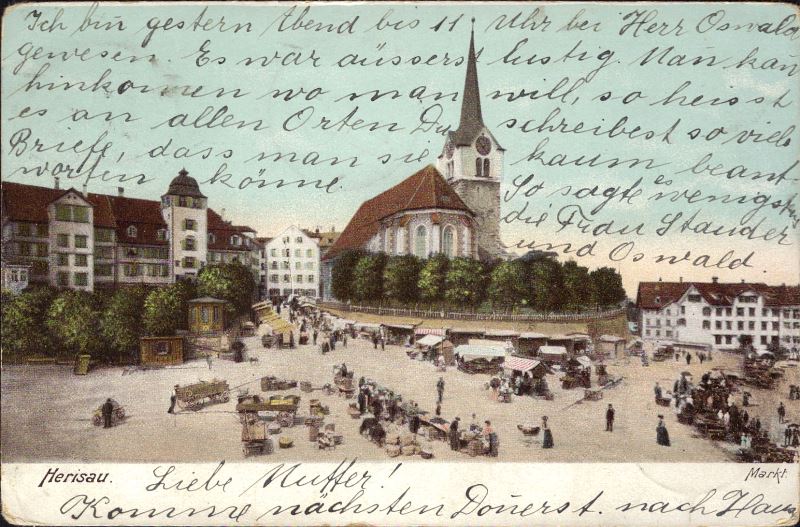 Ich bin gestern Abend bis 11 Uhr bei Herr Oswald
gewesen. Es war äusserst lustig. Man kan
hinkomen wo man will, so heisst
es an allen Orten Du schreibest so viele
Briefe, dass man sie kaum beant
worten könne. So sagte es wenigstens
die Frau Stauder
und Oswald.
Herisau.
Markt.
Liebe Muffer!
Komme nächsten Donerst. nach Haus